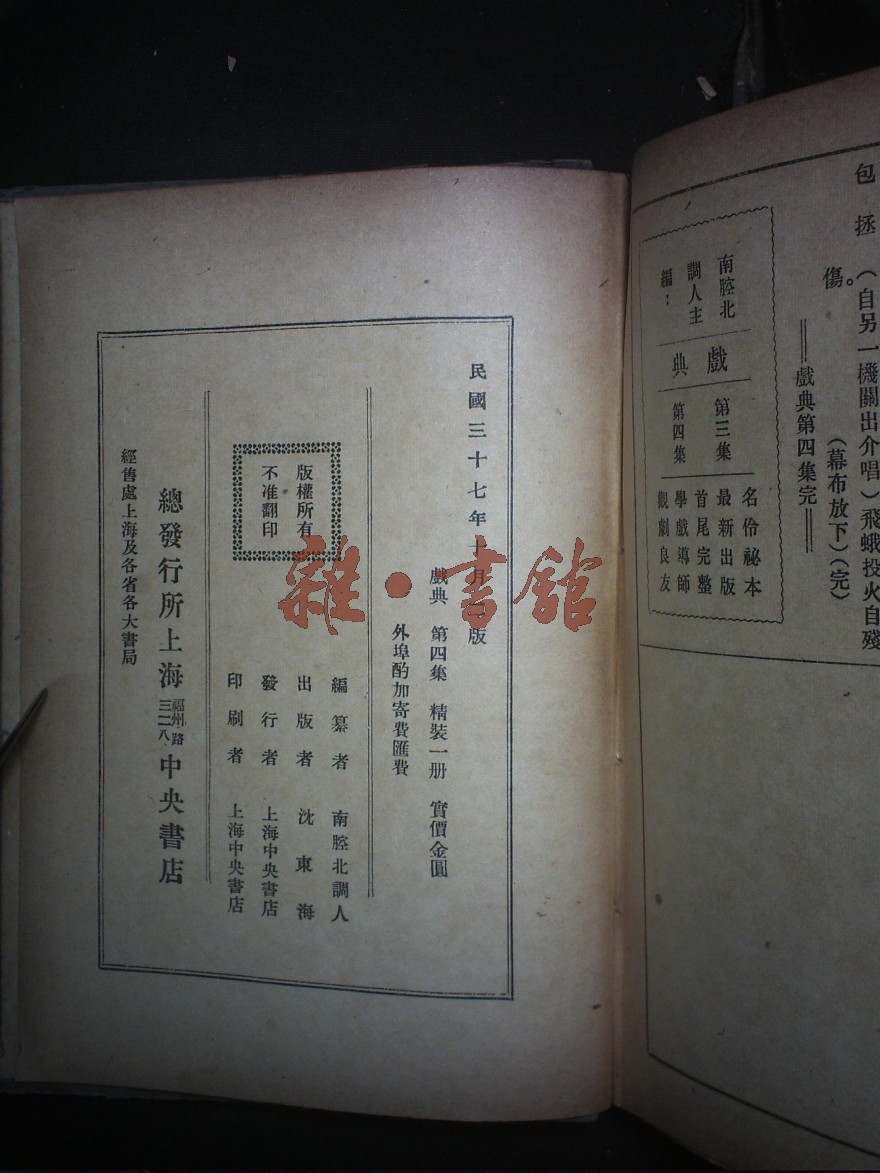 包拯　(自另一機關出介唱)飛蛾投火自殘
傷。
(幕布放下)(完)
══戲典第四集完══
南腔北
調人主
編：
戲典
第三集
第四集
名伶祕本
最新出版
首尾完整
學戲導師
觀劇良友
民國三十七年十月　版
戲典　第四集　精裝一册　實價金圓
外埠酌加寄費匯費
版權所有
不准翻印
編纂者　南腔北調人
出版者　沈東海
發行者　上海中央書店
印刷者　上海中央書店
總發行所上海福州路三二八中央書店
經售處上海及各省各大書局
雜·書館